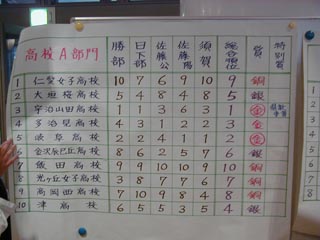 高校A部門 勝部 日下部 佐藤公 佐藤陽 須賀 総合順位 賞 特別賞
1 仁愛女子高校 10 7 6 9 10 9 銅
2 大垣桜高校 5 4 8 4 8 5 銀
3 宇治山田高校 1 1 3 6 3 1 金
4 多治見高校 4 3 1 2 2 3 金
5 岐阜高校 2 2 4 1 1 2 金
6 金沢辰巳丘高校 8 6 2 5 7 6 銀
7 飯田高校 9 9 10 10 9 10 銅
8 光ヶ丘女子高校 3 8 7 7 6 7 銅
9 高岡西高校 7 10 9 8 4 8 銅
10 津高校 6 5 5 3 5 4 銀